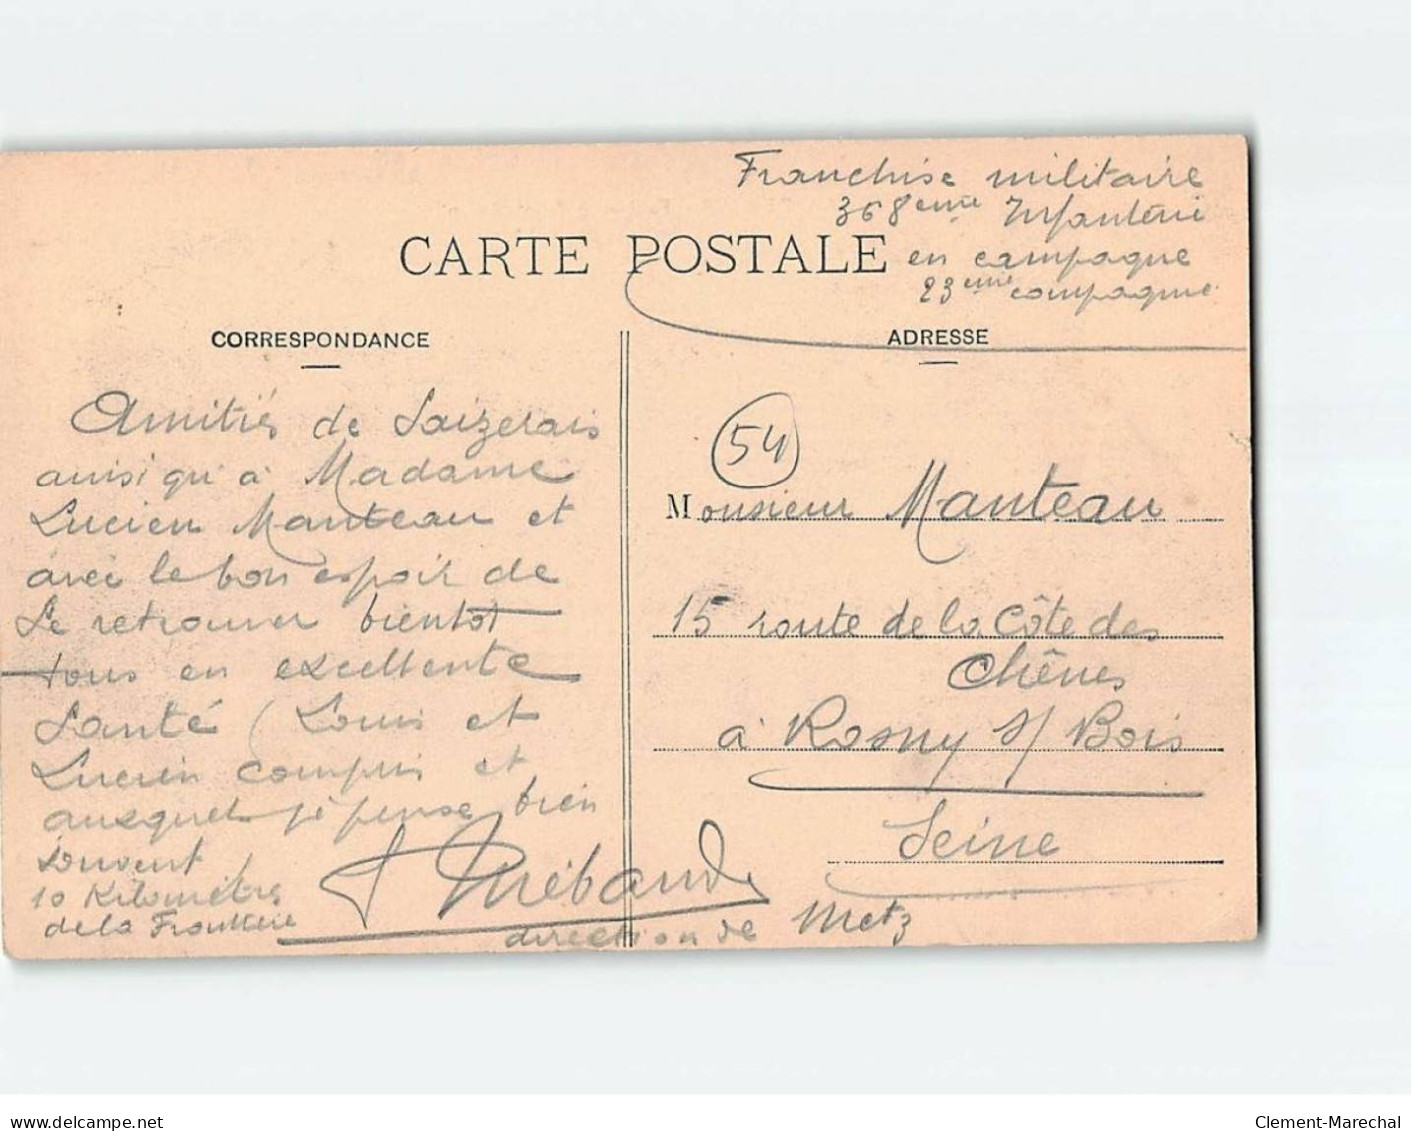 Franchise militaire
368eme Infanterie
en campagne
23eme compagnie
CARTE POSTALE
CORRESPONDANCE
ADRESSE
Amitiés de Saizerais
ainsi qu'à Madame
Lucien Manteau et
avec le bon espoir de
se retrouver bientot
tous en excellente
Santé (Louis et
Lucien compris et
auxquels je pense bien
souvent
10 Kilomètres
de la Frontière
direction de Metz
54
Monsieur Manteau
15 route de la Côte des
Chênes
à Rosny s/ Bois
Seine
delcampe.net
Clement-Marechal